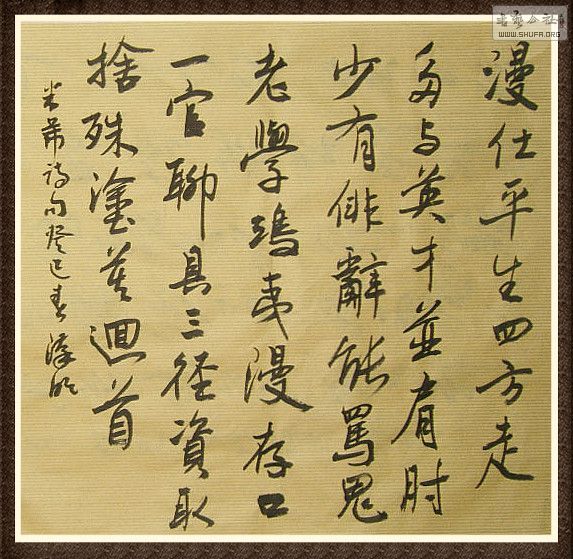 書藝公社
WWW.SHUFA.ORG
漫仕平生四方走
多与英才並肩肘
少有俳辭能罵鬼
老學鴟夷漫存口
一官聊具三径資取
捨殊塗莫迴首
米芾詩句癸巳春